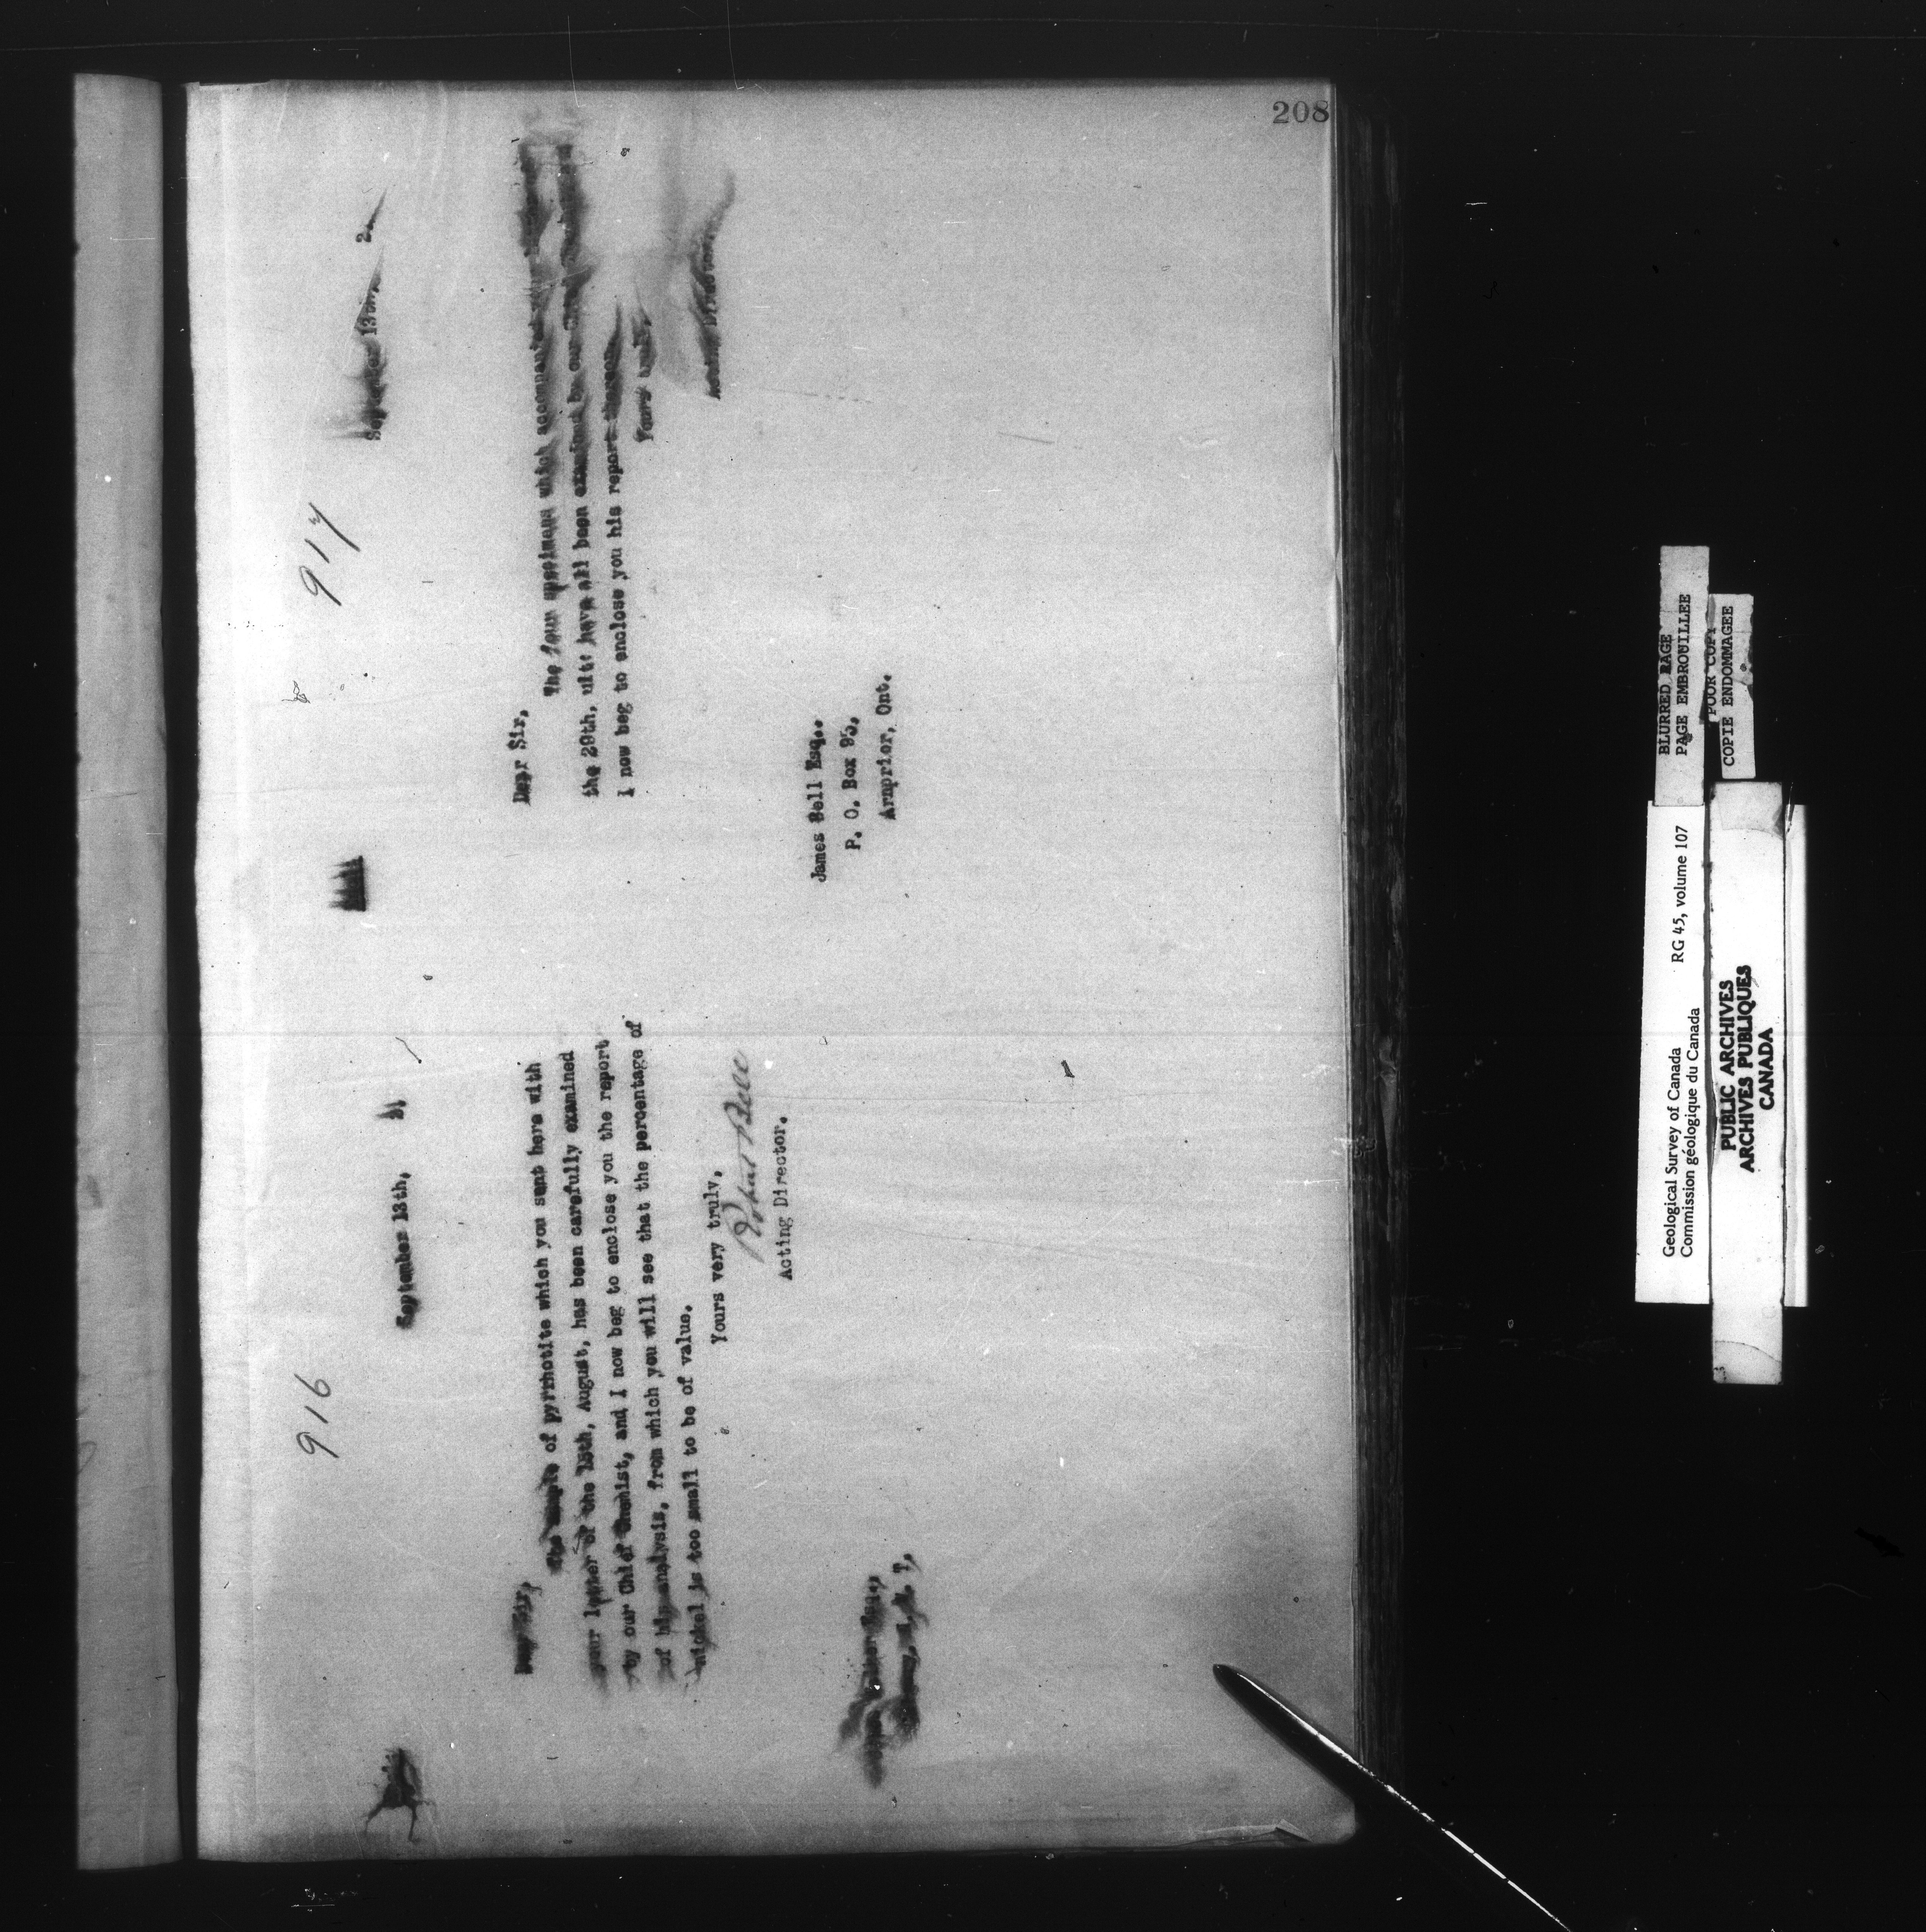 208
916
September 13th,
Dear Sir,
The sample of pyrrhotite which you sent here with
your letter of the 15th, August, has been carefully examined
by our Chief Chemist, and I now beg to enclose you the report
of his analysis, from which you will see that the percentage of
nickel is too small to be of value.
Yours very truly,
Robert Bell
Acting Director.
917
September 13th, 2.
Dear Sir,
The four specimens which accompanied
the 29th, ult: have all been examined by our
I now beg to enclose you his report thereon
Yours truly,
Acting Director.
James Bell Esq..
P. O. Box 95,
Arnprior, Ont.
BLURRED PAGE
PAGE EMBROUILLEE
POOR COPY
COPIE ENDOMMAGEE
Geological Survey of Canada RG 45, volume 107
Commission géologique du Canada
PUBLIC ARCHIVES
ARCHIVES PUBLIQUES
CANADA